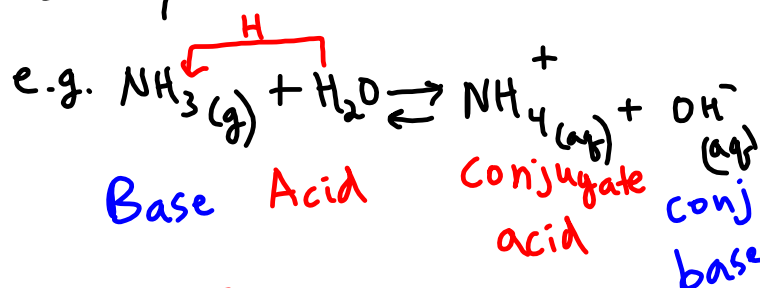 H
e.g. NH₃(g) + H₂O ⇌ NH₄⁺(aq) + OH⁻(aq)
Base Acid Conjugate acid conj base